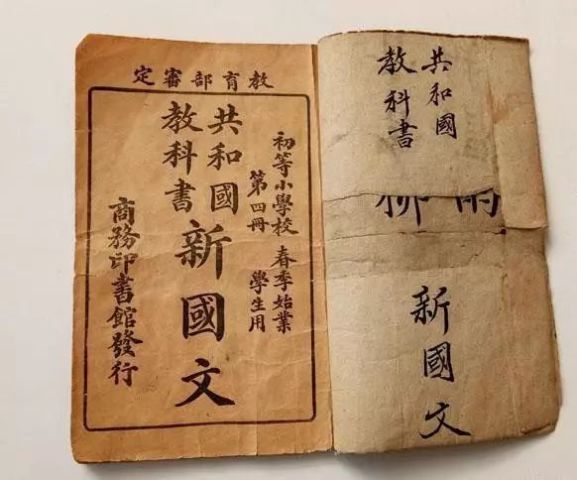 教育部審定
初等小學校 春季始業
第四冊 學生用
共和國
教科書
新國文
商務印書館發行
共和國
教科書
新國文